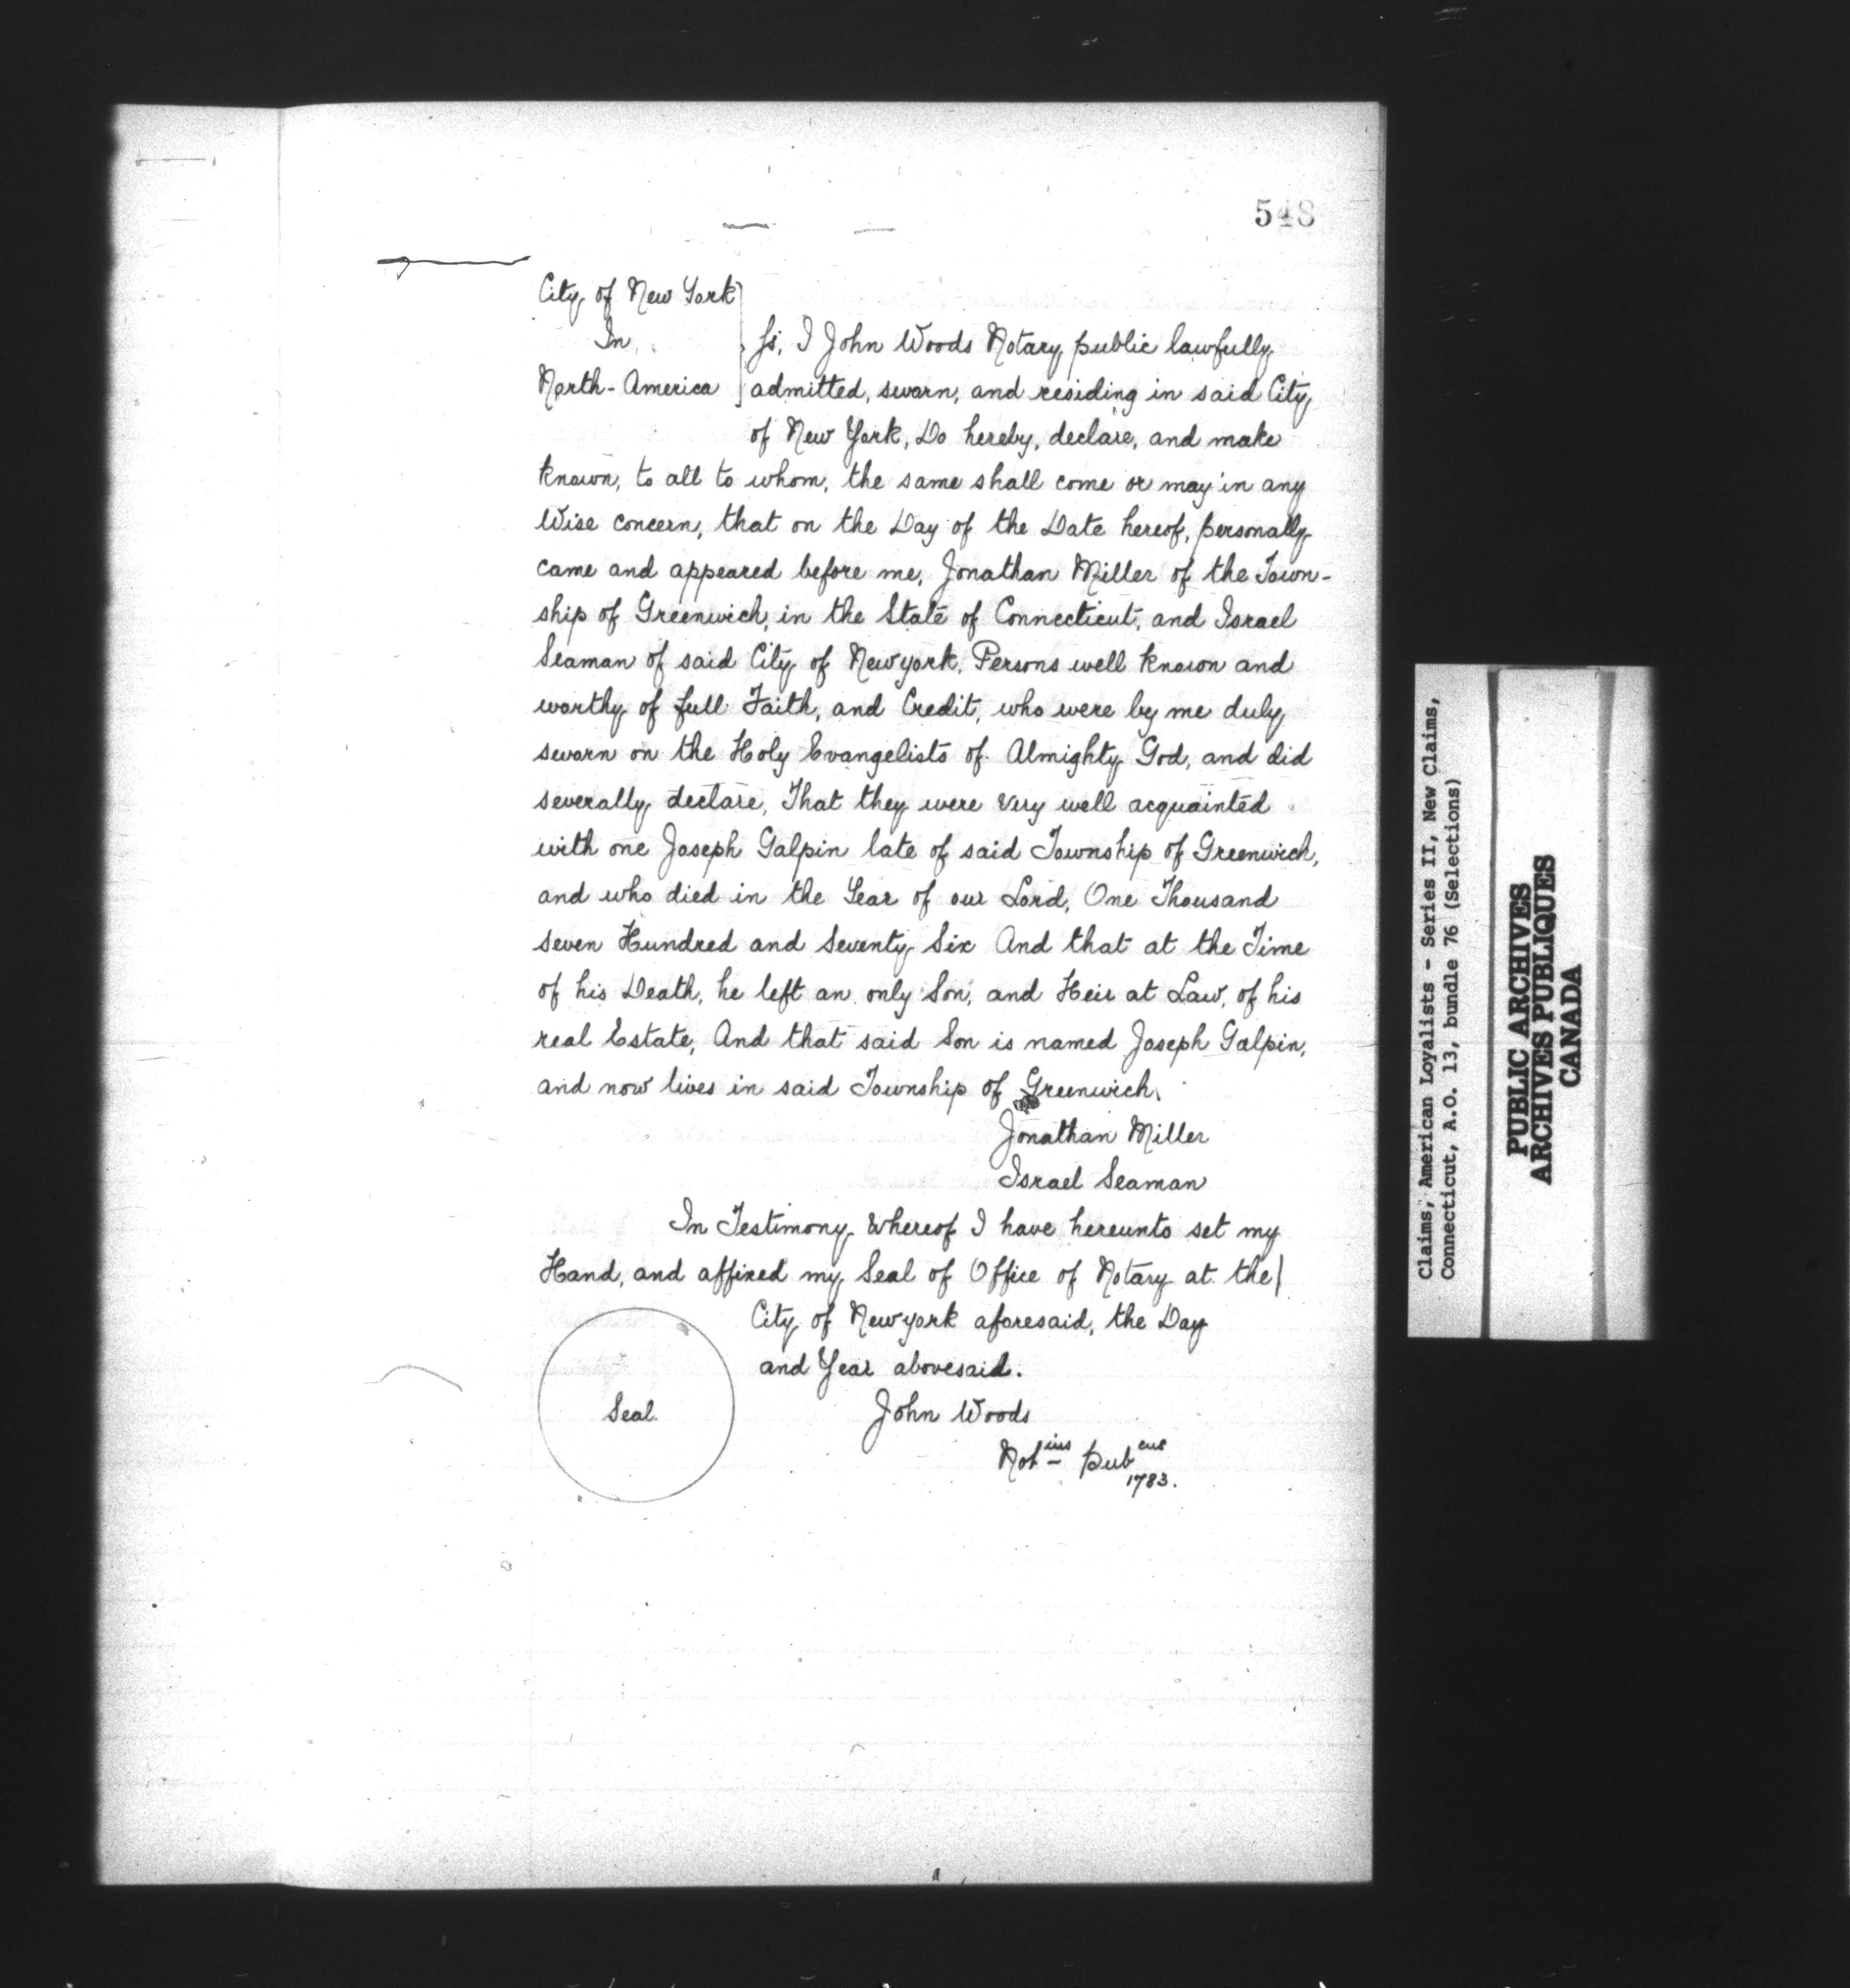 548
City of New York
In
North-America
fs, I John Woods Notary public lawfully
admitted, sworn, and residing in said City
of New York, Do hereby, declare, and make
known, to all to whom, the same shall come or may in any
Wise concern, that on the Day of the Date hereof, personally
came and appeared before me, Jonathan Miller of the Town-
ship of Greenwich, in the State of Connecticut, and Israel
Seaman of said City of Newyork, Persons well known and
worthy of full Faith, and Credit, who were by me duly
sworn on the Holy Evangelists of Almighty God, and did
severally declare, That they were very well acquainted
with one Joseph Galpin late of said Township of Greenwich,
and who died in the Year of our Lord, One Thousand
seven Hundred and Seventy Six And that at the Time
of his Death, he left an only Son, and Heir at Law, of his
real Estate, And that said Son is named Joseph Galpin,
and now lives in said Township of Greenwich.
Jonathan Miller
Israel Seaman
In Testimony Whereof I have hereunto set my
Hand, and affixed my Seal of Office of Notary at the
City of Newyork aforesaid, the Day
and Year abovesaid.
Seal.
John Woods
Not ius pub cus
1783.
Claims, American Loyalists - Series II, New Claims,
Connecticut, A.O. 13, bundle 76 (Selections)
PUBLIC ARCHIVES
ARCHIVES PUBLIQUES
CANADA